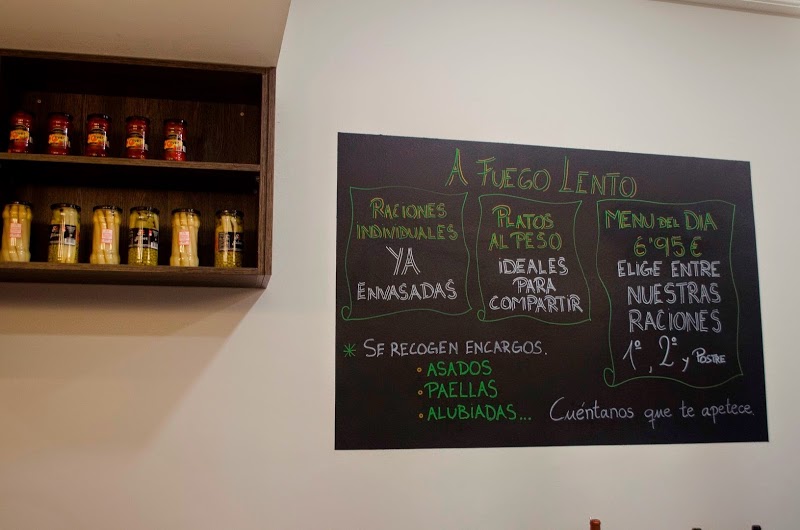 A FUEGO LENTO
RACIONES
INDIVIDUALES
YA
ENVASADAS
PLATOS
AL PESO
IDEALES
PARA
COMPARTIR
MENU DEL DIA
6'95 €
ELIGE ENTRE
NUESTRAS
RACIONES
1º, 2º y POSTRE
* SE RECOGEN ENCARGOS.
ASADOS
PAELLAS
ALUBIADAS...
Cuéntanos que te apetece.